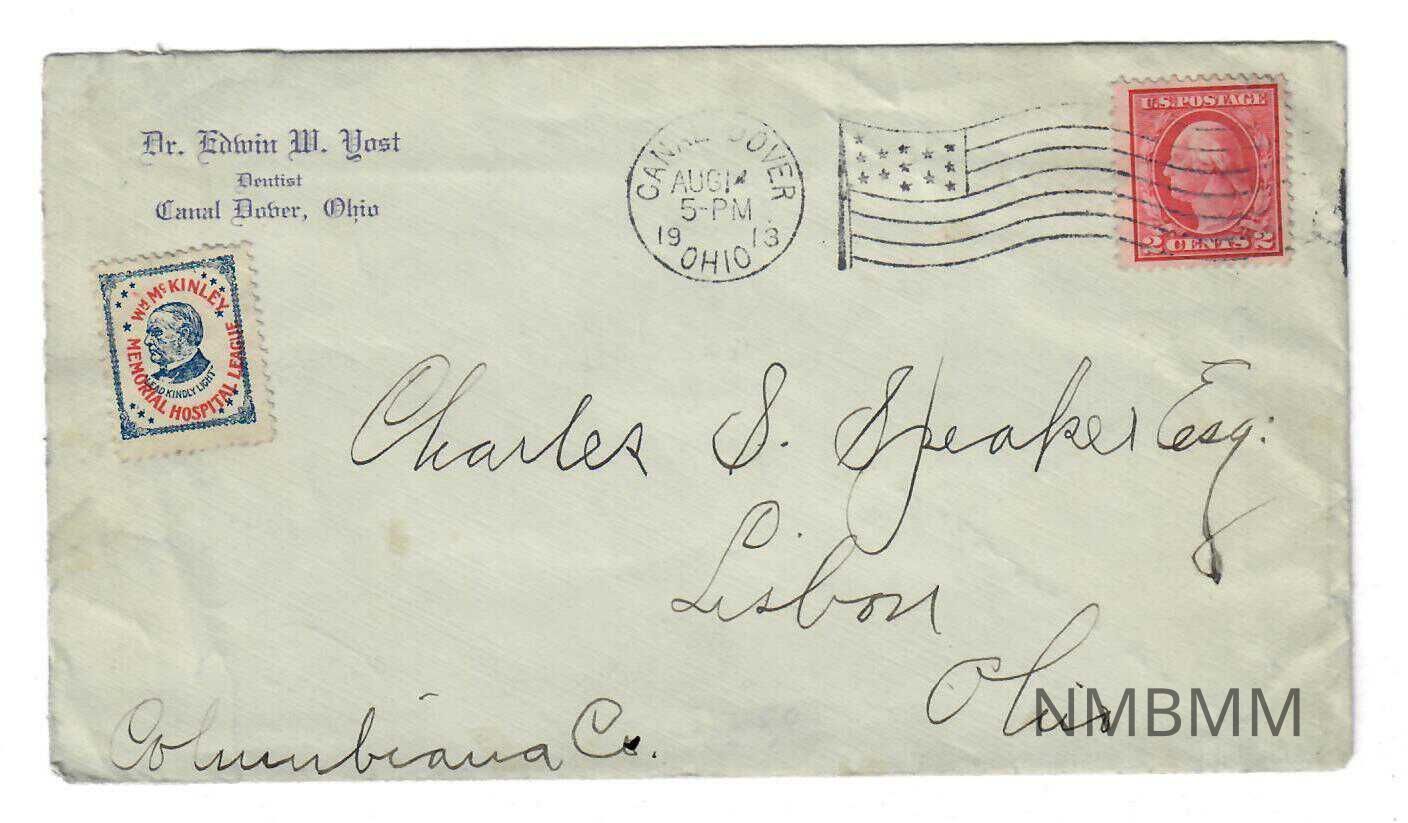 Dr. Edwin W. Yost
Dentist
Canal Dover, Ohio
CANAL DOVER
AUG 14
5-PM
19 13
OHIO
U.S. POSTAGE
2 CENTS 2
WM McKINLEY
MEMORIAL HOSPITAL LEAGUE
"LEAD KINDLY LIGHT"
Charles S. Speaker Esq:
Lisbon
Ohio
Columbiana Co.
NMBMM